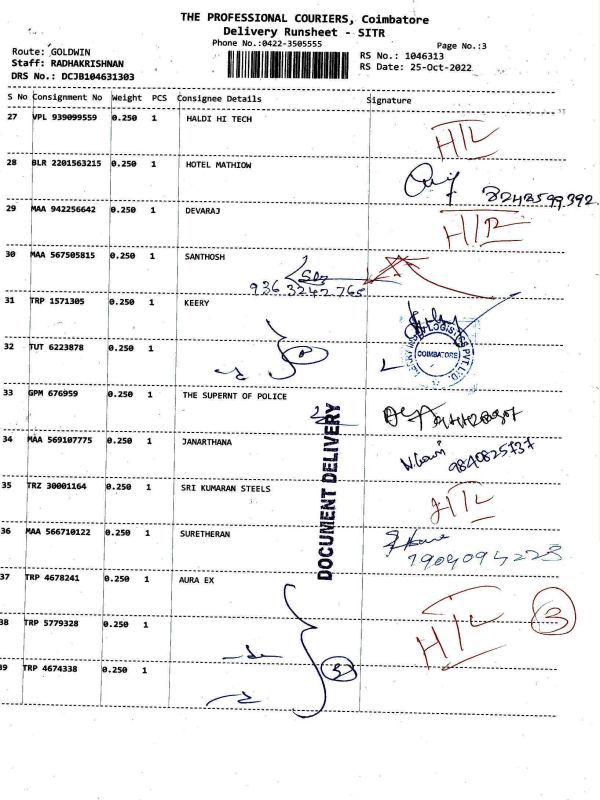 THE PROFESSIONAL COURIERS, Coimbatore
Delivery Runsheet - SITR
Phone No.:0422-3505555
Page No.:3
Route: GOLDWIN
Staff: RADHAKRISHNAN
DRS No.: DCJB104631303
RS No.: 1046313
RS Date: 25-Oct-2022
S No Consignment No Weight PCS Consignee Details Signature
27 VPL 939099559 0.250 1 HALDI HI TECH H/L
28 BLR 2201563215 0.250 1 HOTEL MATHIOW
29 MAA 942256642 0.250 1 DEVARAJ
30 MAA 567505815 0.250 1 SANTHOSH
936 3242 765
31 TRP 1571305 0.250 1 KEERY
32 TUT 6223878 0.250 1
COIMBATORE
33 GPM 676959 0.250 1 THE SUPERNT OF POLICE
34 MAA 569107775 0.250 1 JANARTHANA
9840825737
35 TRZ 30001164 0.250 1 SRI KUMARAN STEELS H/L
36 MAA 566710122 0.250 1 SURETHERAN
DOCUMENT DELIVERY
37 TRP 4678241 0.250 1 AURA EX
38 TRP 5779328 0.250 1 H/L 3
39 TRP 4674338 0.250 1 3